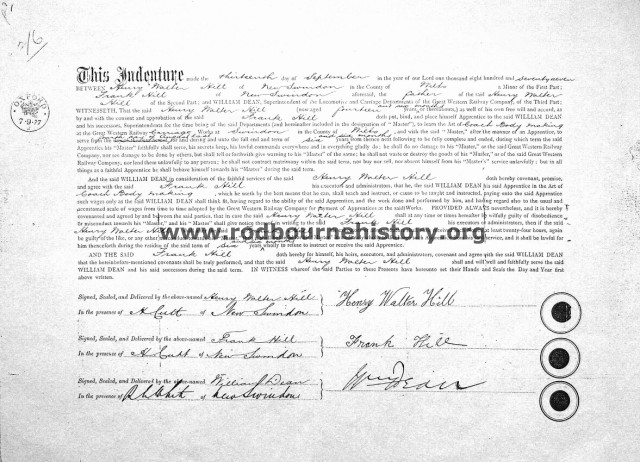 2/6
OXFORD
7·9·77
This Indenture made the thirteenth day of September in the year of our Lord one thousand eight hundred and seventy seven
BETWEEN Henry Walter Hill of New Swindon in the County of Wilts a Minor of the First Part;
Frank Hill of New Swindon aforesaid, the father of the said Henry Walter
Hill of the Second Part; and WILLIAM DEAN, Superintendent of the Locomotive and Carriage Departments of the Great Western Railway Company, of the Third Part;
WITNESSETH, That the said Henry Walter Hill (now aged fourteen and six months years, or thereabouts,) as well of his own free will and accord, as
by and with the consent and approbation of the said Frank Hill doth put, bind, and place himself Apprentice to the said WILLIAM DEAN
and his successors, Superintendents for the time being of the said Departments (and hereafter included in the designation of "Master,") to learn the Art of Coach Body making
at the Great Western Carriage Works at Swindon in the County of Wilts, and with the said "Master," after the manner of an Apprentice, to
serve from the for and during and until the full end and term of six and six months years from thence next following to be fully complete and ended, during which term the said
Apprentice his "Master" faithfully shall serve, his secrets keep, his lawful commands everywhere and in everything gladly do; he shall do no damage to his "Master", or the said Great Western Railway
Company, nor see damage to be done by others, but shall tell or forthwith give warning to his "Master" of the same; he shall not waste or destroy the goods of his "Master," or of the said Great Western
Railway Company, nor lend them unlawfully to any person; he shall not contract matrimony within the said term, nor buy nor sell, nor absent himself from his "Master's" service unlawfully; but in all
things as a faithful Apprentice he shall behave himself towards his "Master" during the said term.
And the said WILLIAM DEAN in consideration of the faithful service of the said Henry Walter Hill doth hereby covenant, promise,
and agree with the said Frank Hill his executors and administrators, that he, the said WILLIAM DEAN his said Apprentice in the Art of
Coach Body making, which he useth by the best means that he can, shall teach and instruct, or cause to be taught and instructed, paying unto the said Apprentice
such wages only as the said WILLIAM DEAN shall think fit, having regard to the ability of the said Apprentice, and the work done and performed by him, and having regard also to the usual and
accustomed scale of wages from time to time adopted by the Great Western Railway Company for payment of Apprentices at the said Works. PROVIDED ALWAYS nevertheless, and it is hereby
covenanted and agreed by and between the said parties, that in case the said Henry Walter Hill shall at any time or times hereafter be wilfully guilty of disobedience,
www.rodbournehistory.org
during the residue of the said term of six and six months years, wholly to refuse to instruct or receive the said Apprentice.
AND THE SAID Frank Hill doth hereby for himself, his heirs, executors, and administrators, covenant and agree with the said WILLIAM DEAN
that the hereinbefore-mentioned covenants shall be truly performed, and that the said Henry Walter Hill shall and will well and faithfully serve the said
WILLIAM DEAN and his said successors during the said term. IN WITNESS whereof the said Parties to these Presents have hereunto set their Hands and Seals the Day and Year first
above written.
Signed, Sealed, and Delivered by the above-named Henry Walter Hill
In the presence of of New Swindon
Henry Walter Hill
Signed, Sealed, and Delivered by the above-named Frank Hill
In the presence of of New Swindon
Frank Hill
Signed, Sealed, and Delivered by the above-named William Dean
In the presence of of New Swindon
Wm Dean